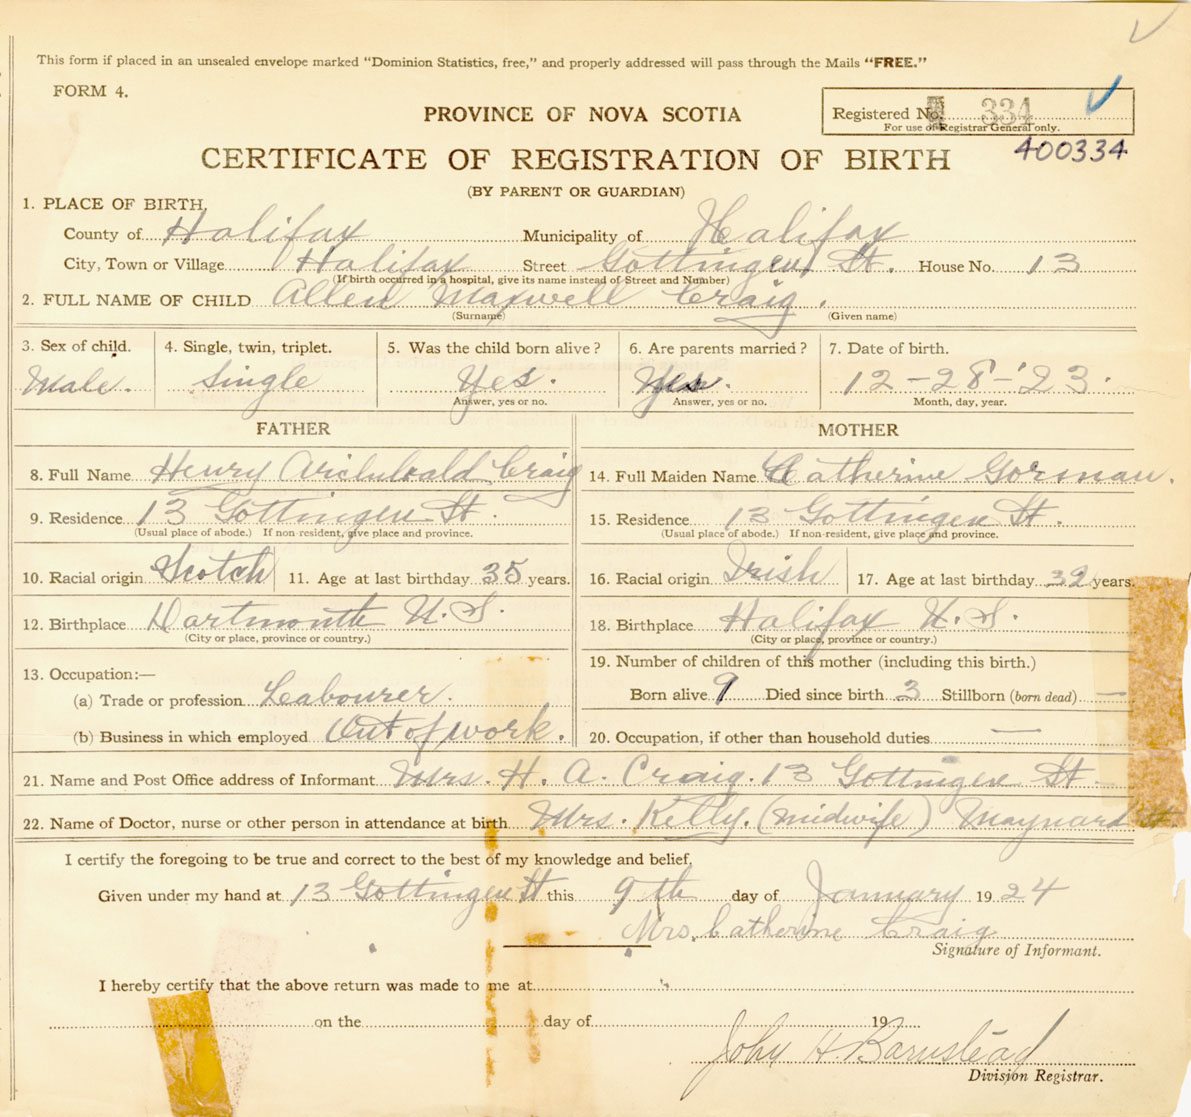 This form if placed in an unsealed envelope marked "Dominion Statistics, free," and properly addressed will pass through the Mails "FREE."
FORM 4.
PROVINCE OF NOVA SCOTIA
Registered No. 334
For use of Registrar General only.
400334
CERTIFICATE OF REGISTRATION OF BIRTH
(BY PARENT OR GUARDIAN)
1. PLACE OF BIRTH,
County of Halifax Municipality of Halifax
City, Town or Village Halifax Street Gottingen St. House No. 13
(If birth occurred in a hospital, give its name instead of Street and Number)
2. FULL NAME OF CHILD Allen Maxwell Craig.
(Surname) (Given name)
3. Sex of child. 4. Single, twin, triplet. 5. Was the child born alive? 6. Are parents married? 7. Date of birth.
Male. Single Yes. Yes. 12-28-'23.
Answer, yes or no. Answer, yes or no. Month, day, year.
FATHER MOTHER
8. Full Name Henry Archibald Craig 14. Full Maiden Name Catherine Gorman.
9. Residence 13 Gottingen St. 15. Residence 13 Gottingen St.
(Usual place of abode.) If non-resident, give place and province. (Usual place of abode.) If non-resident, give place and province.
10. Racial origin Scotch 11. Age at last birthday 35 years. 16. Racial origin Irish 17. Age at last birthday 32 years.
12. Birthplace Dartmouth N.S. 18. Birthplace Halifax N.S.
(City or place, province or country.) (City or place, province or country.)
13. Occupation:— 19. Number of children of this mother (including this birth.)
(a) Trade or profession Labourer. Born alive 9 Died since birth 3 Stillborn (born dead) —
(b) Business in which employed Out of work. 20. Occupation, if other than household duties —
21. Name and Post Office address of Informant Mrs. H. A. Craig. 13 Gottingen St.
22. Name of Doctor, nurse or other person in attendance at birth Mrs. Kelly. (midwife) Maynard St.
I certify the foregoing to be true and correct to the best of my knowledge and belief.
Given under my hand at 13 Gottingen St this 9th day of January 1924
Mrs. Catherine Craig
Signature of Informant.
I hereby certify that the above return was made to me at
on the day of 19
John H. Barnstead
Division Registrar.